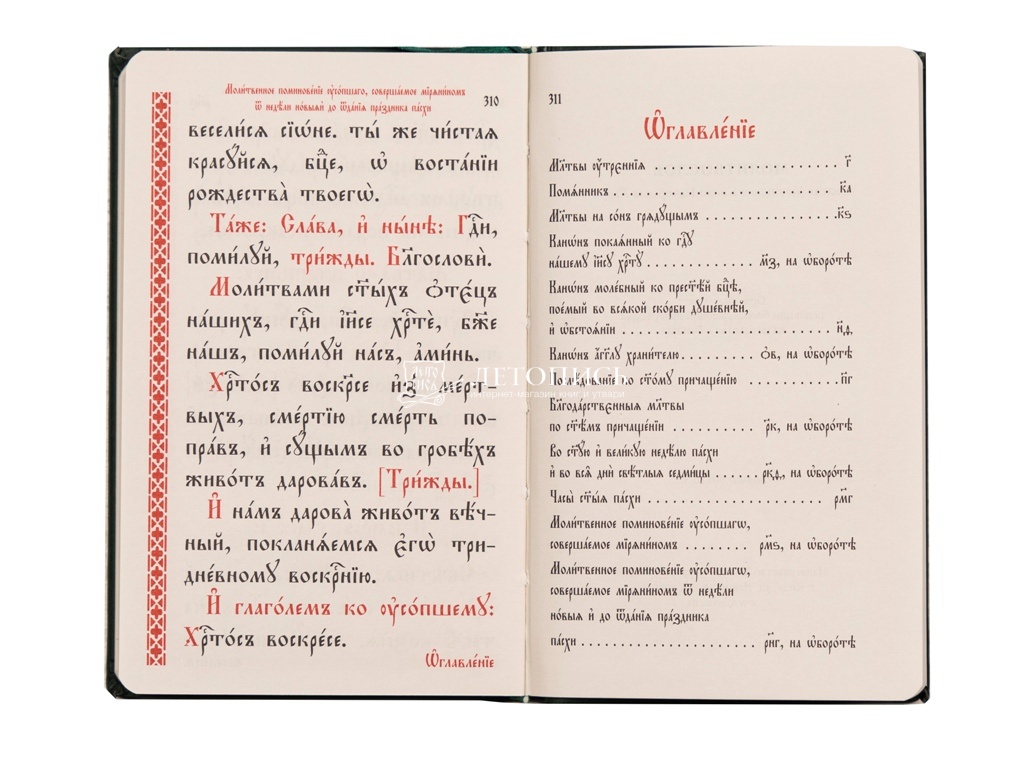 Моли́твенное поминове́нїе ᲂу҆со́пшаго, соверша́емое мїрѧни́номъ
ѿ недѣ́ли но́выѧ до ѿда́нїѧ пра́здника па́схи
310
весели́сѧ сїѡ́не. ты́ же чи́стаѧ
красꙋ́йсѧ, бц҃е, ѡ҆ воста́нїи
рождества̀ твоегѡ̀.
Та́же: Сла́ва, и҆ ны́нѣ: Гдⷭ҇и,
поми́лꙋй, три́жды. Бл҃гословѝ.
Моли́твами ст҃ы́хъ ѻ҆тє́цъ
на́шихъ, гдⷭ҇и і҆и҃се хрⷭ҇тѐ, бж҃е
на́шъ, поми́лꙋй на́съ, а҆ми́нь.
Хрⷭ҇то́съ воскр҃се и҆з̾ ме́рт-
выхъ, сме́ртїю сме́рть по-
пра́въ, и҆ сꙋ́щымъ во гробѣ́хъ
живо́тъ дарова́въ. [Три́жды.]
И҆ на́мъ дарова̀ живо́тъ вѣ́ч-
ный, покланѧ́емсѧ є҆гѡ̀ три-
дне́вномꙋ воскрⷭ҇нїю.
И҆ глаго́лемъ ко ᲂу҆со́пшемꙋ:
Хрⷭ҇то́съ воскре́се.
Ѡ҆главле́нїе
311
Ѡ҆главле́нїе
Мл҃твы ᲂу҆́трєннїѧ . . . г҃
Помѧ́нникъ . . . к҃а
Мл҃твы на со́нъ грѧдꙋ́щымъ . . . к҃ѕ
Кано́нъ покаѧ́нный ко гдⷭ҇ꙋ
на́шемꙋ і҆и҃сꙋ хрⷭ҇тꙋ̀ . . . м҃з, на ѡ҆боро́тѣ
Кано́нъ моле́бный ко прест҃ѣ́й бц҃ѣ,
пое́мый во всѧ́кой ско́рби дꙋше́внѣй,
и҆ ѡ҆бстоѧ́нїи . . . н҃д
Кано́нъ а҆́гг҃лꙋ храни́телю . . . ѻ҃в, на ѡ҆боро́тѣ
Послѣ́дованїе ко ст҃о́мꙋ причаще́нїю . . . п҃г
Бл҃года́рствєнныѧ мл҃твы
по ст҃ѣ́мъ причаще́нїи . . . р҃к, на ѡ҆боро́тѣ
Во ст҃ꙋ́ю и҆ вели́кꙋю недѣ́лю па́схи
и҆ во всѧ̑ дни̑ свѣ́тлыѧ седми́цы . . . рк҃д, на ѡ҆боро́тѣ
Часы̀ ст҃ы́ѧ па́схи . . . рм҃г
Моли́твенное поминове́нїе ᲂу҆со́пшагѡ,
соверша́емое мїрѧни́номъ . . . рм҃ѕ, на ѡ҆боро́тѣ
Моли́твенное поминове́нїе ᲂу҆со́пшагѡ,
соверша́емое мїрѧни́номъ ѿ недѣ́ли
но́выѧ и҆ до ѿда́нїѧ пра́здника
па́схи . . . рн҃г, на ѡ҆боро́тѣ
ЛЕТОПИСЬ
интернет-магазин книг и утвари